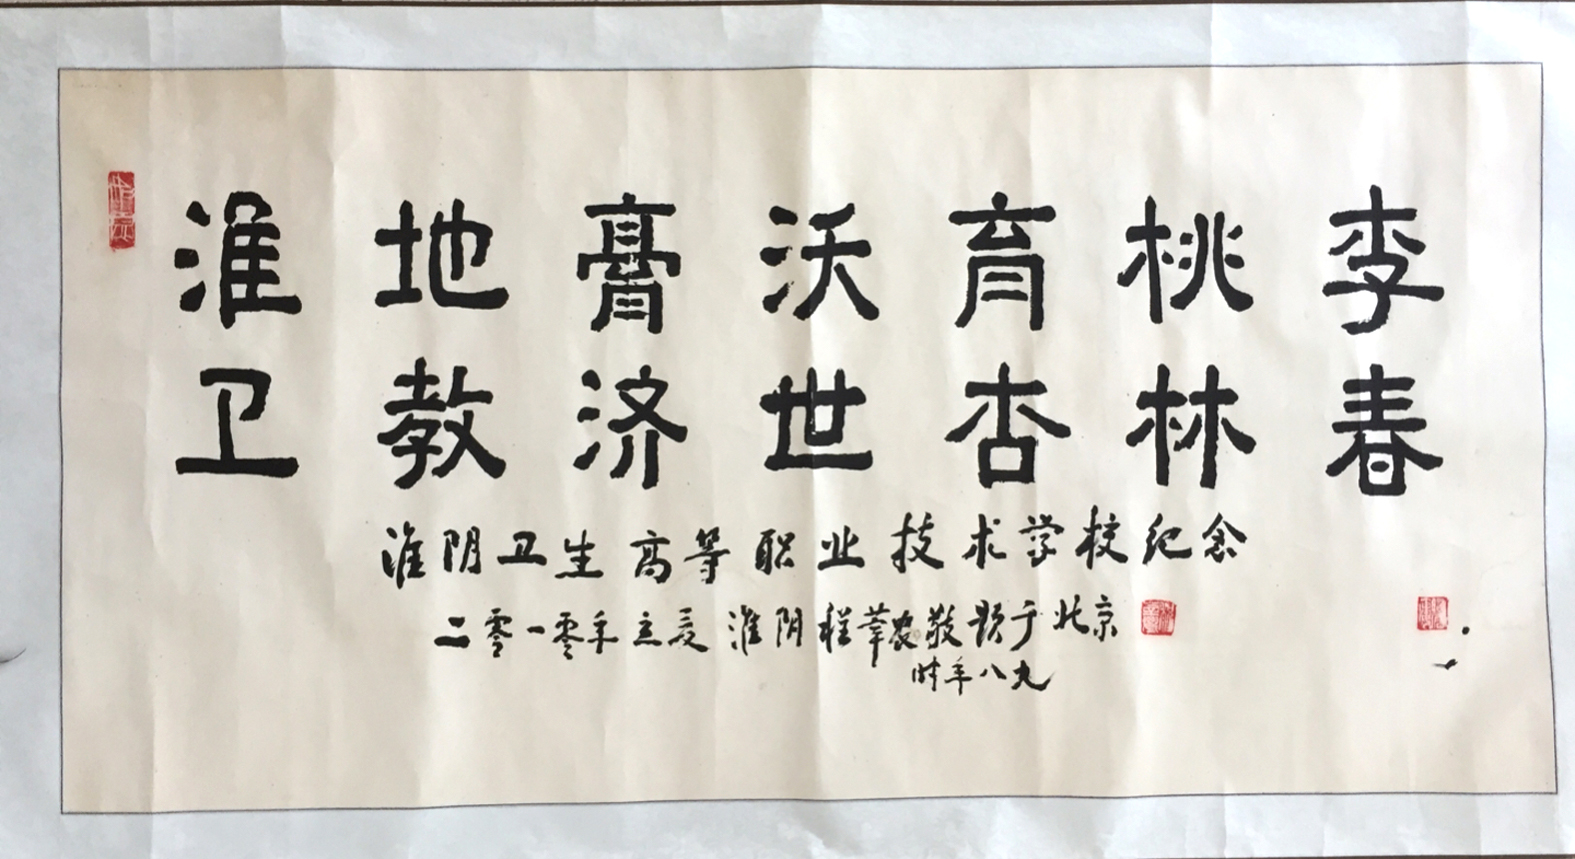 淮地膏沃育桃李
卫教济世杏林春
淮阴卫生高等职业技术学校纪念
二零一零年立夏淮阴程莘农敬题于北京
时年八九